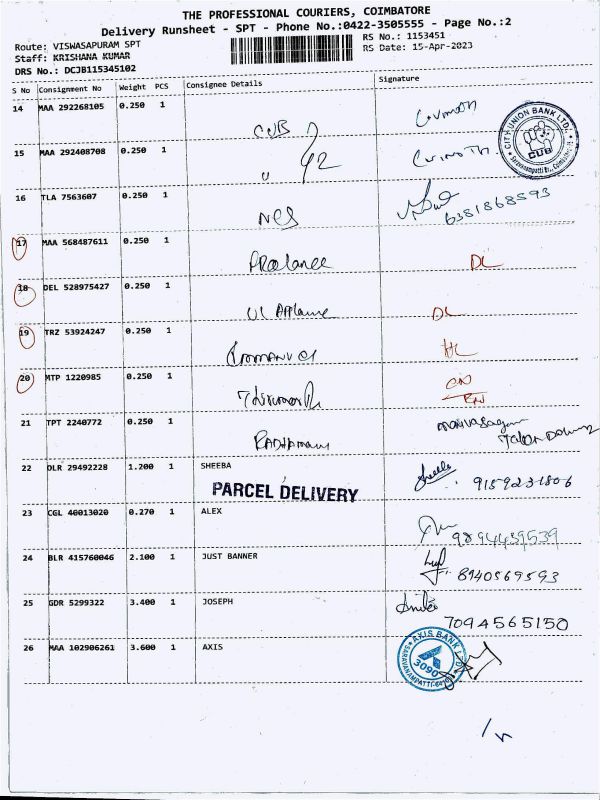 THE PROFESSIONAL COURIERS, COIMBATORE
Delivery Runsheet - SPT - Phone No.:0422-3505555 - Page No.:2
Route: VISWASAPURAM SPT
RS No.: 1153451
Staff: KRISHANA KUMAR
RS Date: 15-Apr-2023
DRS No.: DCJB115345102
S No Consignment No Weight PCS Consignee Details Signature
14 MAA 292268105 0.250 1 CUB
CITY UNION BANK LTD. CUB Saravanampatti Br., Coimbatore
15 MAA 292408708 0.250 1
16 TLA 7563607 0.250 1 6381868593
17 MAA 568487611 0.250 1 DL
18 DEL 528975427 0.250 1 DL
19 TRZ 53924247 0.250 1
20 MTP 1220985 0.250 1
21 TPT 2240772 0.250 1
22 DLR 29492228 1.200 1 SHEEBA Sheeba 9159231806
PARCEL DELIVERY
23 CGL 40013020 0.270 1 ALEX 9894439539
24 BLR 415760046 2.100 1 JUST BANNER 8940569593
25 GDR 5299322 3.400 1 JOSEPH 7094565150
26 MAA 102906261 3.600 1 AXIS
AXIS BANK LTD. 3090 SARAVANAMPATTI